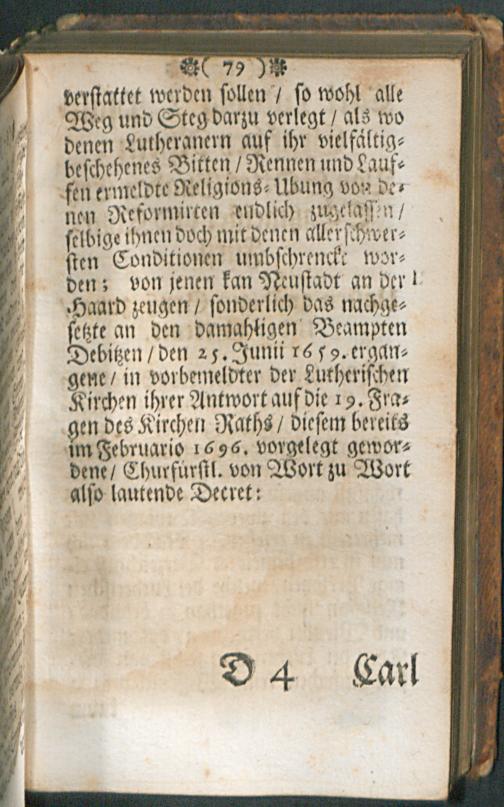 ❉( 79 )❉
verstattet werden sollen / so wohl alle
Weg und Steg darzu verlegt / als wo
denen Lutheranern auf ihr vielfältig-
beschehenes Bitten / Rennen und Lauf-
fen ermeldte Religions-Ubung von de-
nen Reformirten endlich zugelassen /
selbige ihnen doch mit denen allerschwer-
sten Conditionen umbschrenckt wor-
den; von jenen kan Neustadt an der
Haard zeugen / sonderlich das nachge-
setzte an den damahligen Beampten
Debitzen / den 25. Junii 1659. ergan-
gene / in vorbemeldter der Lutherischen
Kirchen ihrer Antwort auf die 19. Fra-
gen des Kirchen Raths / diesem bereits
im Februario 1696. vorgelegt gewor-
dene / Churfürstl. von Wort zu Wort
also lautende Decret:
D 4 Carl